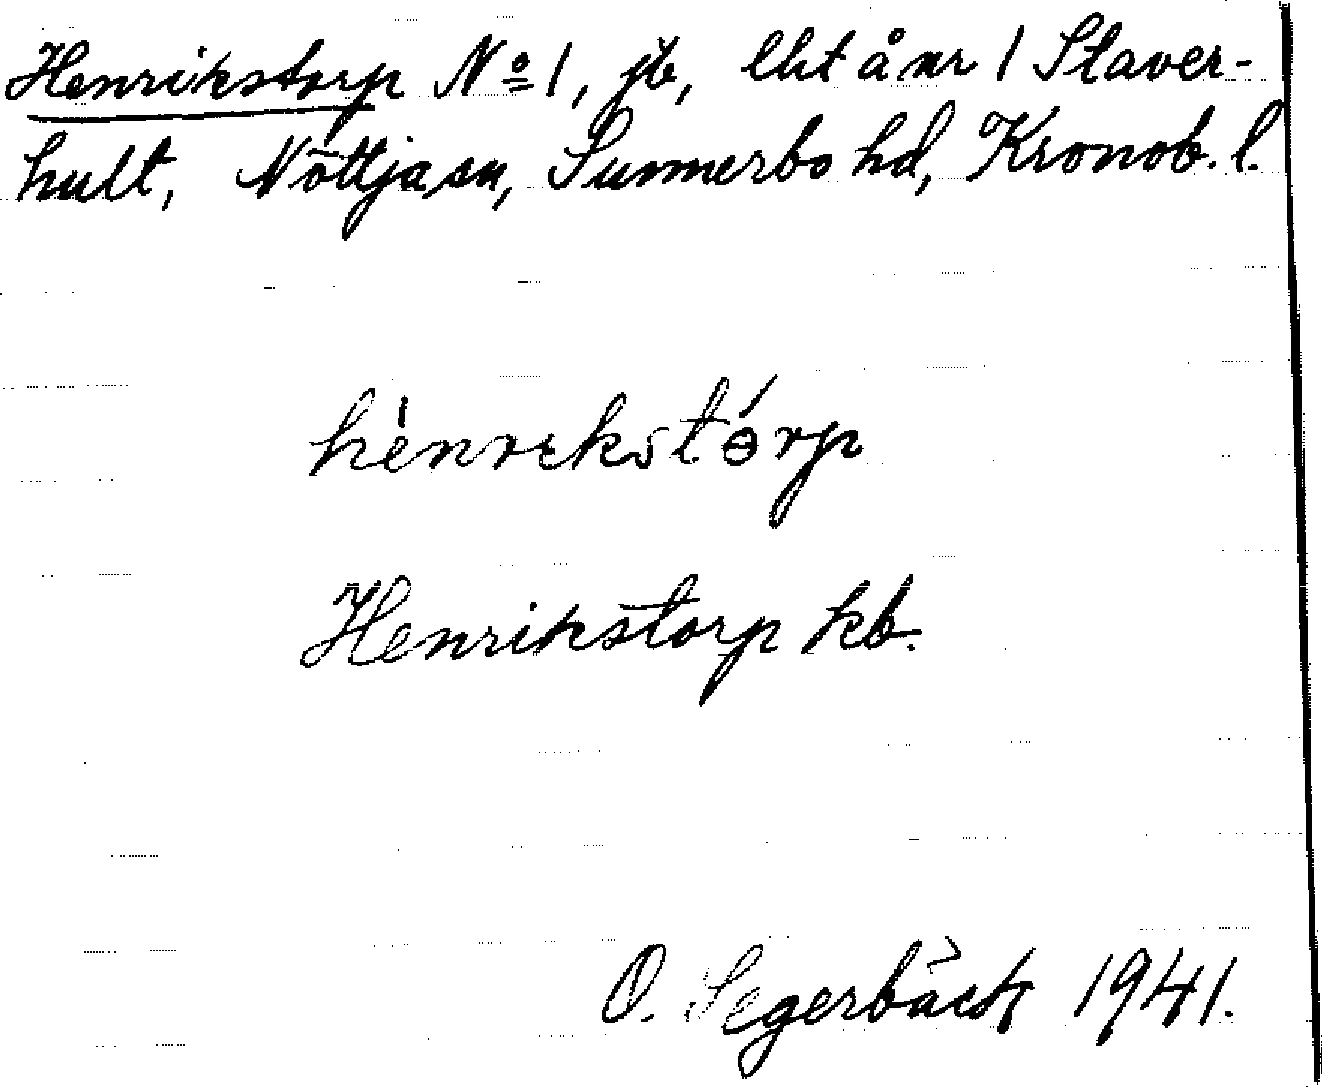 Henrikstorp Nº 1, jb, lht å nr 1 Staver-
hult, Nöttja sn, Sunnerbo hd, Kronob. l.
hènrekstórp
Henrikstorp kb.
O. Segerbäck 1941.